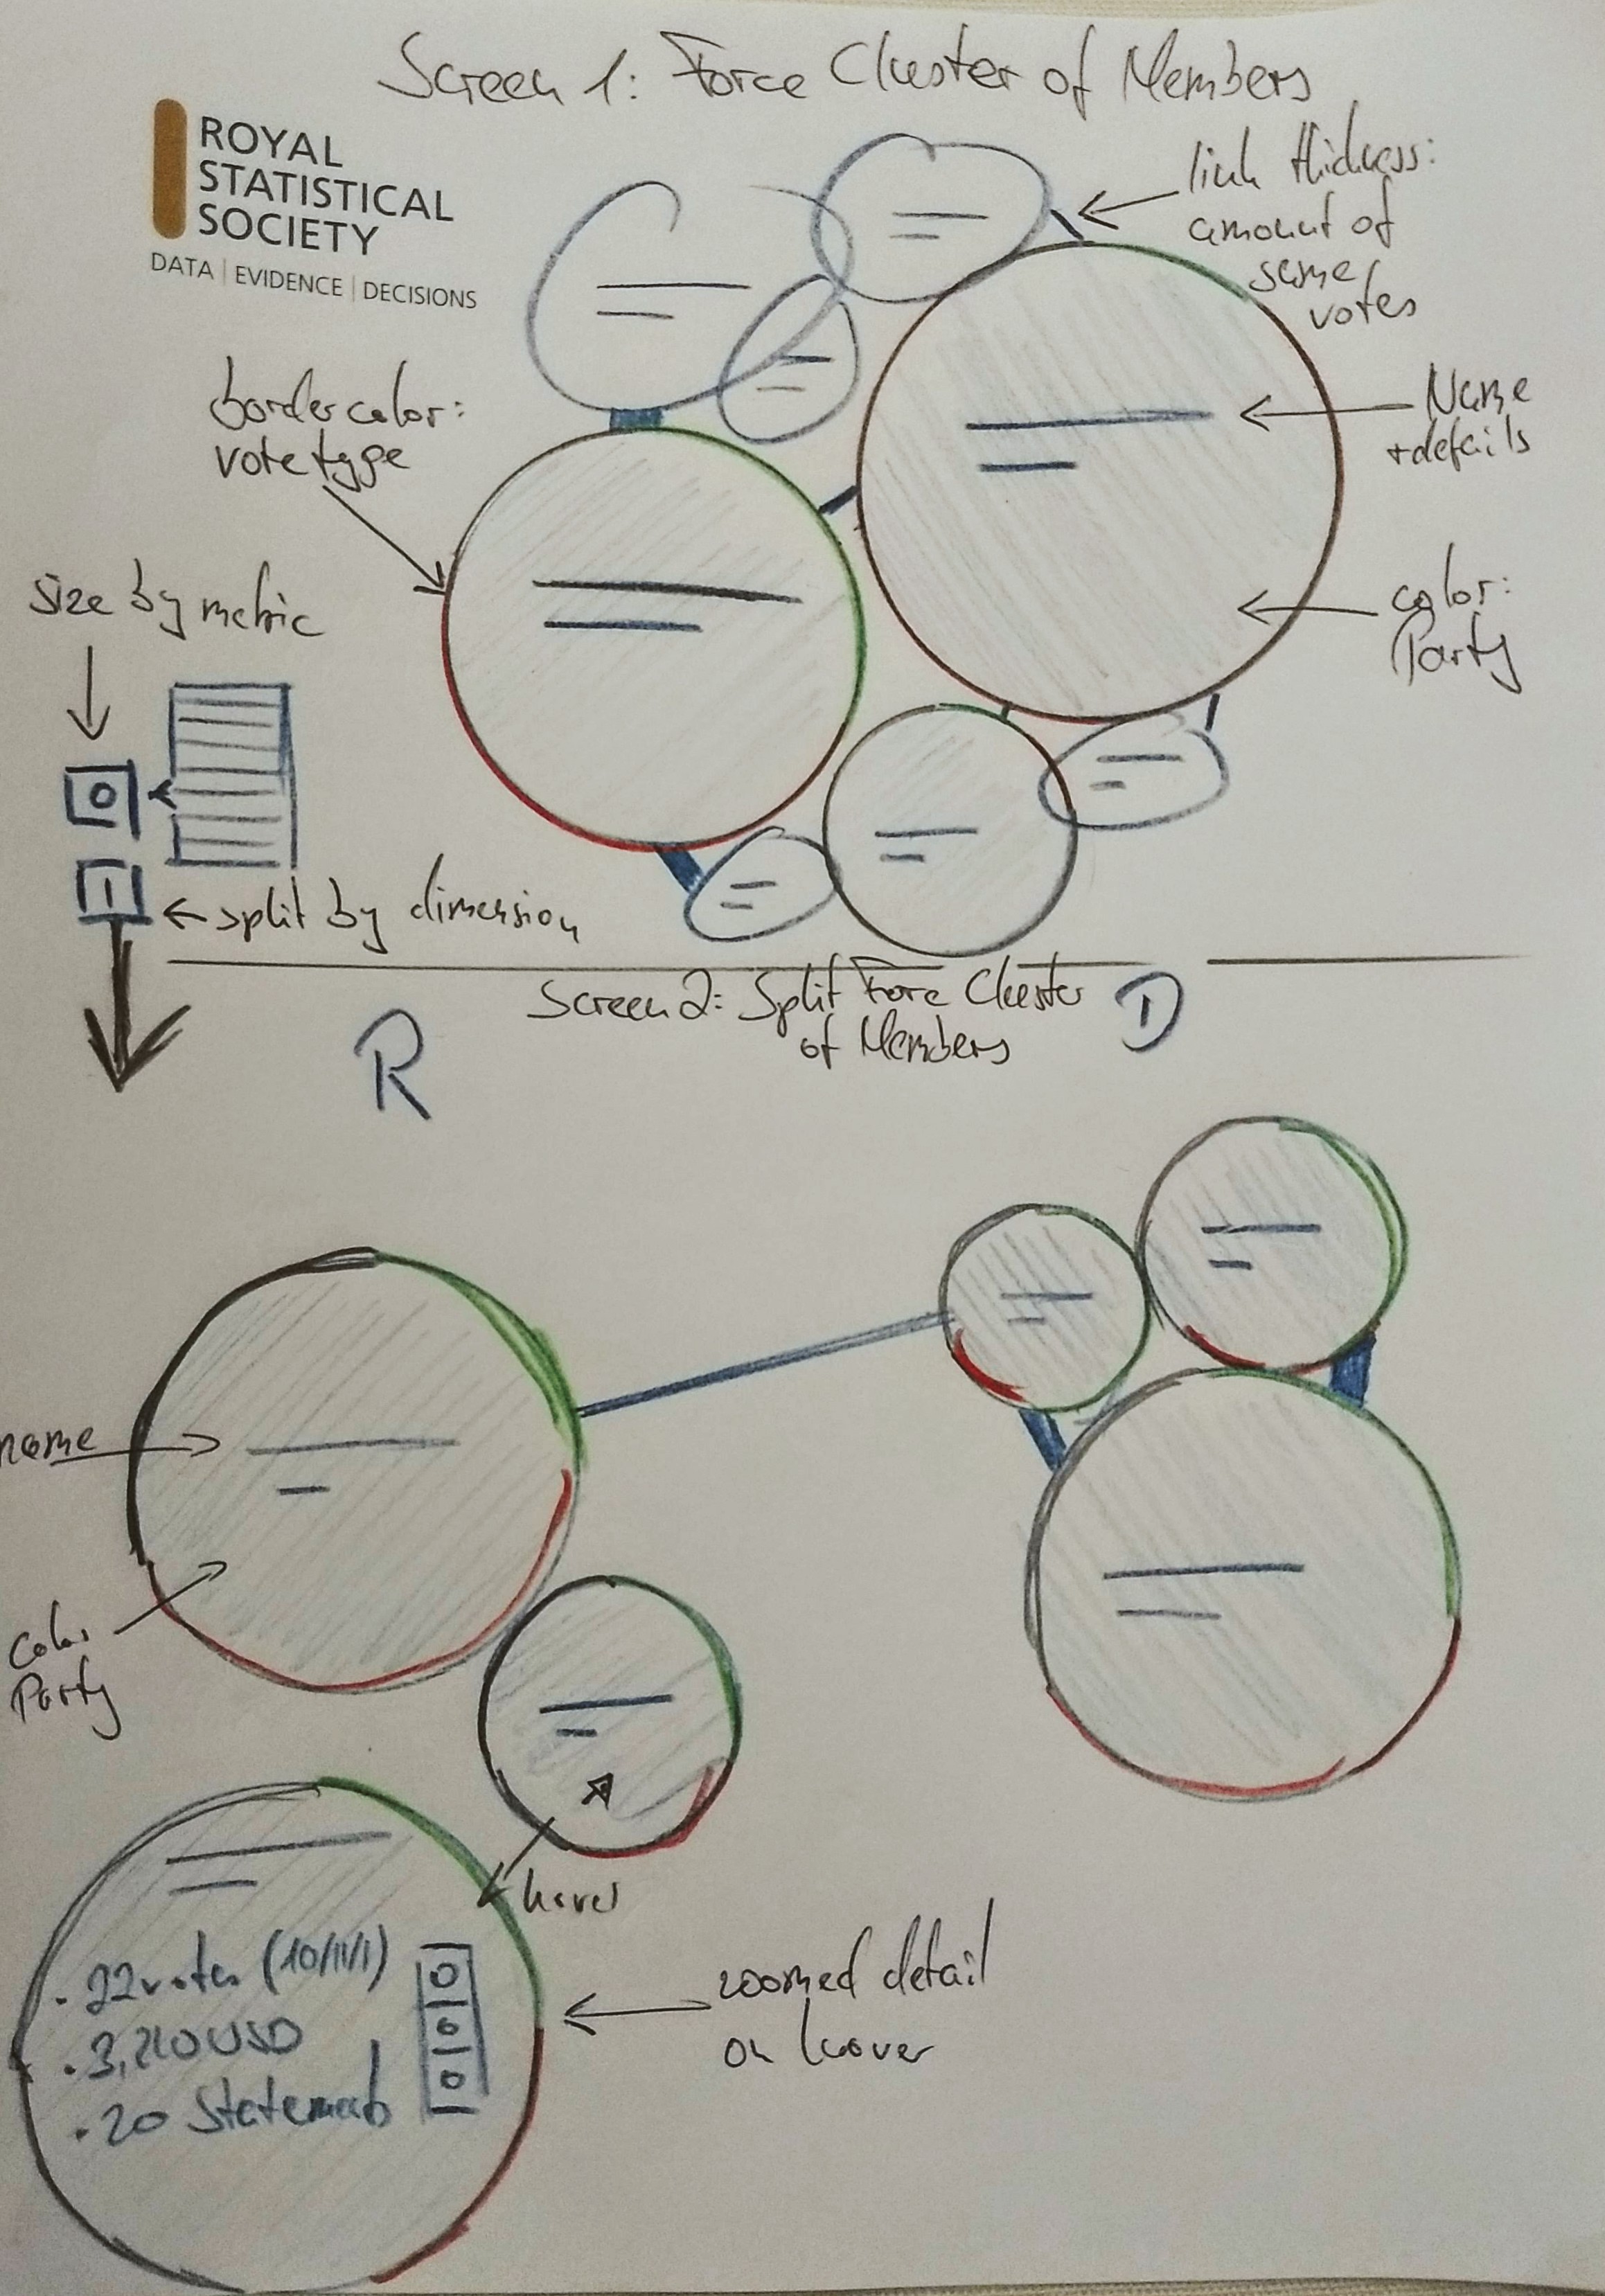 Screen 1: Force Cluster of Members
ROYAL
STATISTICAL
SOCIETY
DATA | EVIDENCE | DECISIONS
link thickness:
amount of
same
votes
border color:
vote type
Name
+details
size by metric
color:
Party
split by dimension
Screen 2: Split Force Cluster
of Members
R
D
name
color
Party
hover
. 22 votes (10/11/1)
. 3,210 USD
. 20 Statements
zoomed detail
on hover